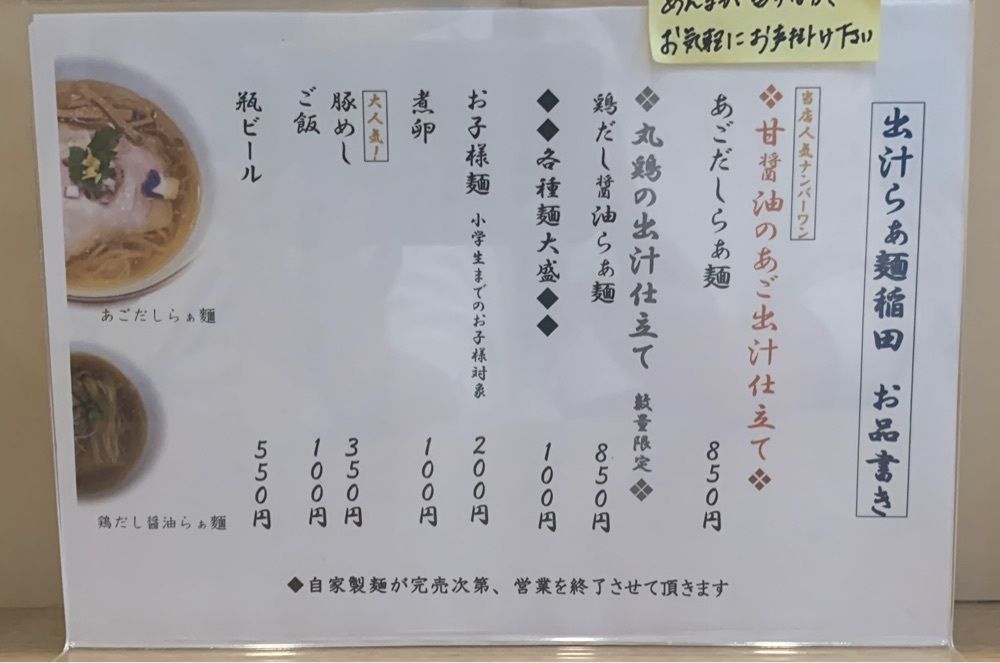 お気軽にお声掛け下さい
出汁らぁ麺稲田 お品書き
当店人気ナンバーワン
❖甘醤油のあご出汁仕立て❖
あごだしらぁ麺 850円
❖丸鶏の出汁仕立て 数量限定❖
鶏だし醤油らぁ麺 850円
◆◆各種麺大盛◆◆ 100円
お子様麺 小学生までのお子様対象 200円
煮卵 100円
大人気!
豚めし 350円
ご飯 100円
瓶ビール 550円
あごだしらぁ麺
鶏だし醤油らぁ麺
◆自家製麺が完売次第、営業を終了させて頂きます